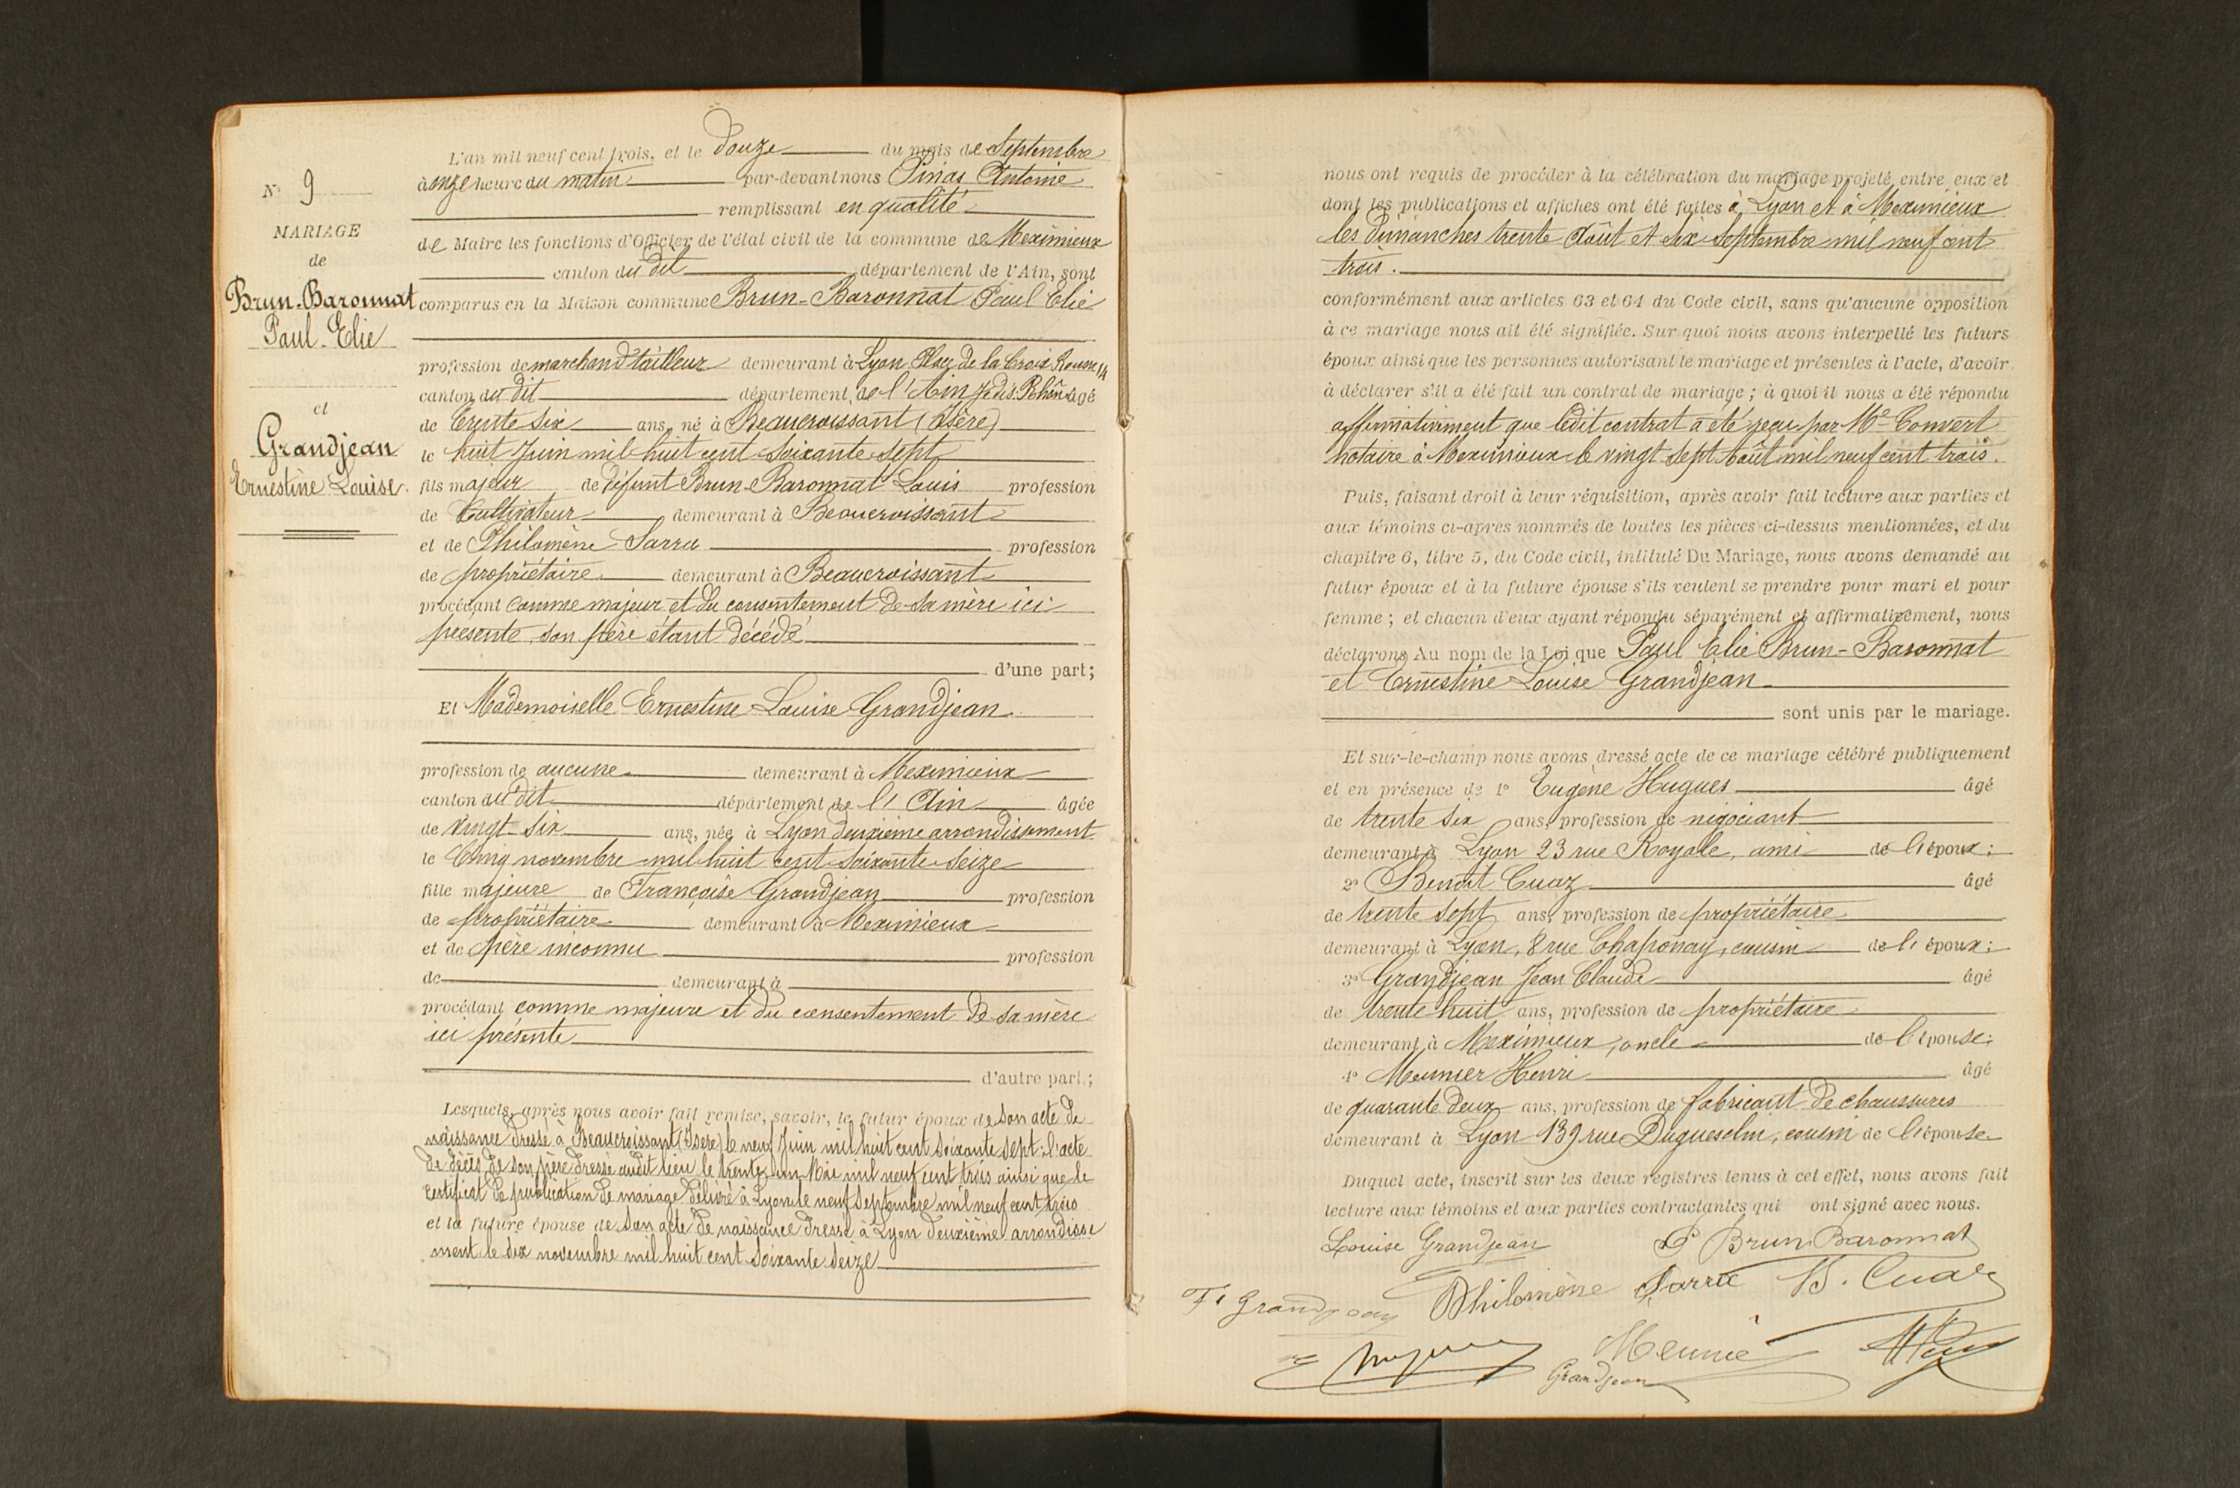 N° 9
MARIAGE
de
Brun-Baronnat
Paul-Elie
et
Grandjean
Ernestine Louise.
L'an mil neuf cent trois, et le douze du mois de Septembre
à onze heure du matin par-devant nous Pinas Antoine
remplissant en qualité
de Maire les fonctions d'Officier de l'état civil de la commune de Meximieux
canton du dit département de l'Ain, sont
comparus en la Maison commune Brun-Baronnat Paul Elie
profession de marchand tailleur demeurant à Lyon Place de la Croix Rousse 14
canton du dit département de l'Ain Rhône âgé
de trente six ans, né à Beaucroissant (Isère)
le huit Juin mil huit cent soixante sept
fils majeur de défunt Brun-Baronnat Louis profession
de Cultivateur demeurant à Beaucroissant
et de Philomène Sarra profession
de propriétaire demeurant à Beaucroissant
procédant comme majeur et du consentement de sa mère ici
présente, son père étant décédé
d'une part;
Et Mademoiselle Ernestine Louise Grandjean
profession de aucune demeurant à Meximieux
canton du dit département de l'Ain âgée
de vingt-six ans, née à Lyon deuxième arrondissement
le Cinq novembre mil huit cent soixante seize
fille majeure de Françoise Grandjean profession
de propriétaire demeurant à Meximieux
et de père inconnu profession
de demeurant à
procédant comme majeure et du consentement de sa mère
ici présente
d'autre part;
Lesquels, après nous avoir fait remise, savoir, le futur époux de son acte de
naissance dressé à Beaucroissant (Isère) le neuf Juin mil huit cent soixante sept; l'acte
de décès de son père dressé audit lieu le trente un Mai mil neuf cent trois ainsi que le
certificat de publication de mariage délivré à Lyon le neuf septembre mil neuf cent trois
et la future épouse de son acte de naissance dressé à Lyon deuxième arrondisse
ment le six novembre mil huit cent soixante seize
nous ont requis de procéder à la célébration du mariage projeté entre eux et
dont les publications et affiches ont été faites à Lyon et à Meximieux
les Dimanches trente Août et six septembre mil neuf cent
trois.
conformément aux articles 63 et 64 du Code civil, sans qu'aucune opposition
à ce mariage nous ait été signifiée. Sur quoi nous avons interpellé les futurs
époux ainsi que les personnes autorisant le mariage et présentes à l'acte, d'avoir
à déclarer s'il a été fait un contrat de mariage; à quoi il nous a été répondu
affirmativement que ledit contrat a été reçu par Me Convert
notaire à Meximieux le vingt sept Août mil neuf cent trois.
Puis, faisant droit à leur réquisition, après avoir fait lecture aux parties et
aux témoins ci-après nommés de toutes les pièces ci-dessus mentionnées, et du
chapitre 6, titre 5, du Code civil, intitulé Du Mariage, nous avons demandé au
futur époux et à la future épouse s'ils veulent se prendre pour mari et pour
femme; et chacun d'eux ayant répondu séparément et affirmativement, nous
déclarons Au nom de la Loi que Paul Elie Brun-Baronnat
et Ernestine Louise Grandjean
sont unis par le mariage.
Et sur-le-champ nous avons dressé acte de ce mariage célébré publiquement
et en présence de 1° Eugène Hugues âgé
de trente six ans, profession de négociant
demeurant à Lyon 23 rue Royale, ami de l'époux;
2° Benoit Cuaz âgé
de trente sept ans, profession de propriétaire
demeurant à Lyon, 8 rue Chaponay, cousin de l'époux;
3° Grandjean Jean Claude âgé
de trente huit ans, profession de propriétaire
demeurant à Meximieux, oncle de l'épouse;
4° Meunier Henri âgé
de quarante deux ans, profession de fabricant de chaussures
demeurant à Lyon 139 rue Duguesclin, cousin de l'épouse
Duquel acte, inscrit sur les deux registres tenus à cet effet, nous avons fait
lecture aux témoins et aux parties contractantes qui ont signé avec nous.
Louise Grandjean P Brun Baronnat
Fe Grandjean Philomène Sarra B. Cuaz
Meunié
Grandjean